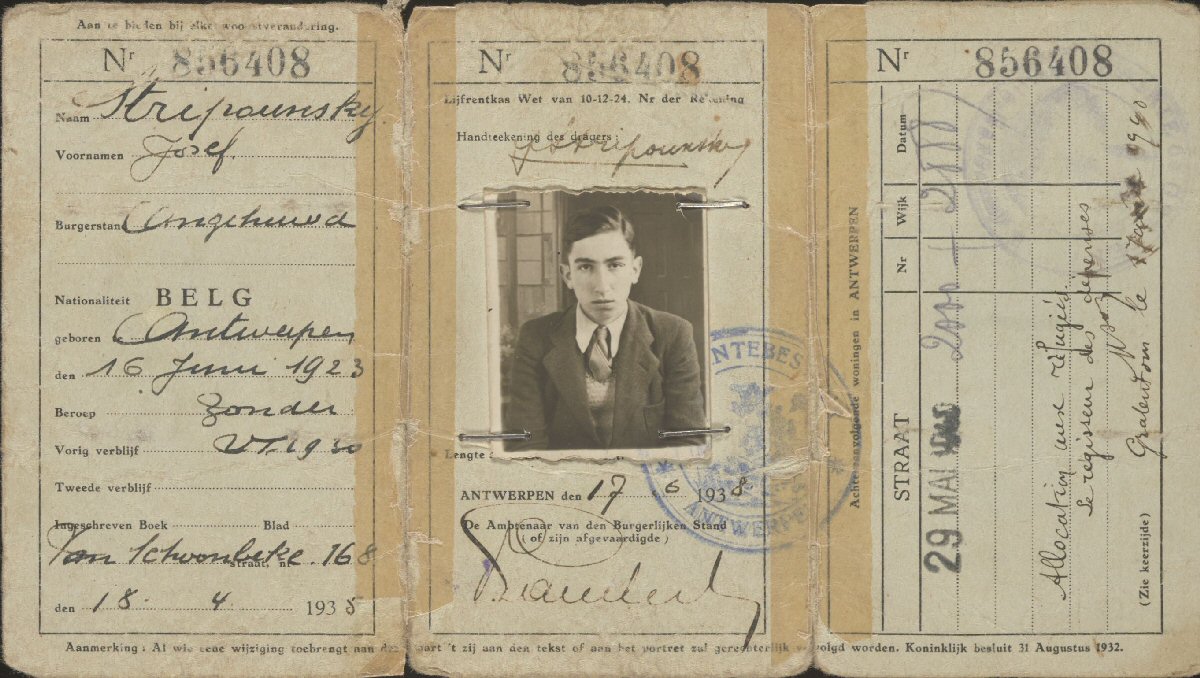 Aan te bieden bij elke woonstverandering.
Nr 856408
Naam Stripounsky
Voornamen Josef
Burgerstand Ongehuwd
Nationaliteit BELG
geboren Antwerpen
den 16 Juni 1923
Beroep Zonder
Vorig verblijf VI-1930
Tweede verblijf
Ingeschreven Boek Blad
Van Schoonbeke straat, nr 168
den 18. 4 1935
Nr 856408
Lijfrentkas Wet van 10-12-24. Nr der Rekening
Handteekening des dragers:
J Stripounsky
Lengte
ANTWERPEN den 17 6 1938
De Ambtenaar van den Burgerlijken Stand
(of zijn afgevaardigde)
ANTWERPEN
Nr 856408
Achtereenvolgende woningen in ANTWERPEN
STRAAT Nr Wijk Datum
29 MAI 1940 2000 + 200
Allocation aux réfugiés.
Le régisseur des dépenses
le 1940
(Zie keerzijde)
Aanmerking: Al wie eene wijziging toebrengt aan deze kaart 't zij aan den tekst of aan het portret zal gerechterlijk vervolgd worden. Koninklijk besluit 31 Augustus 1932.